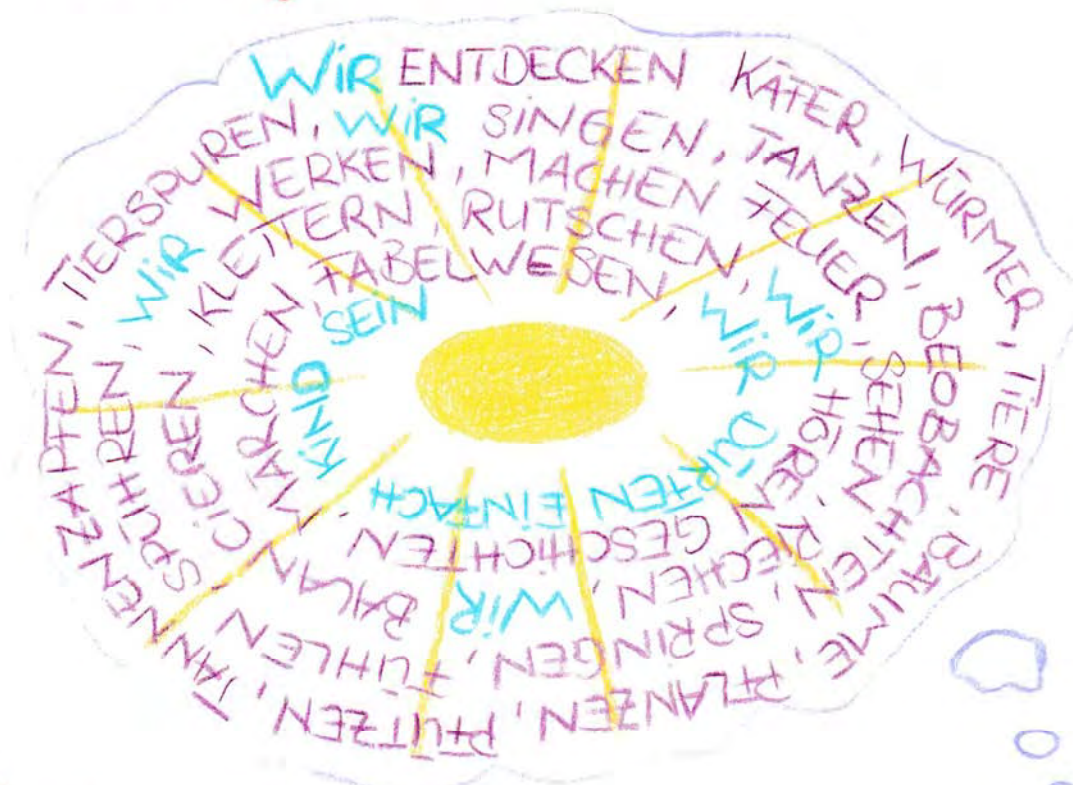 WIR ENTDECKEN KÄFER, WÜRMER, TIERE, BÄUME, PFLANZEN, PFÜTZEN, TANNENZAPFEN, TIERSPUREN,
WIR SINGEN, TANZEN, BEOBACHTEN, SPRINGEN, FÜHLEN SPÜHREN, WIR
WERKEN, MACHEN FEUER, SEHEN, RIECHEN, WIR BALANCIEREN, KLETTERN, RUTSCHEN,
WIR HÖREN GESCHICHTEN, MÄRCHEN, FABELWEBEN,
WIR DÜRFTEN EINFACH KIND SEIN